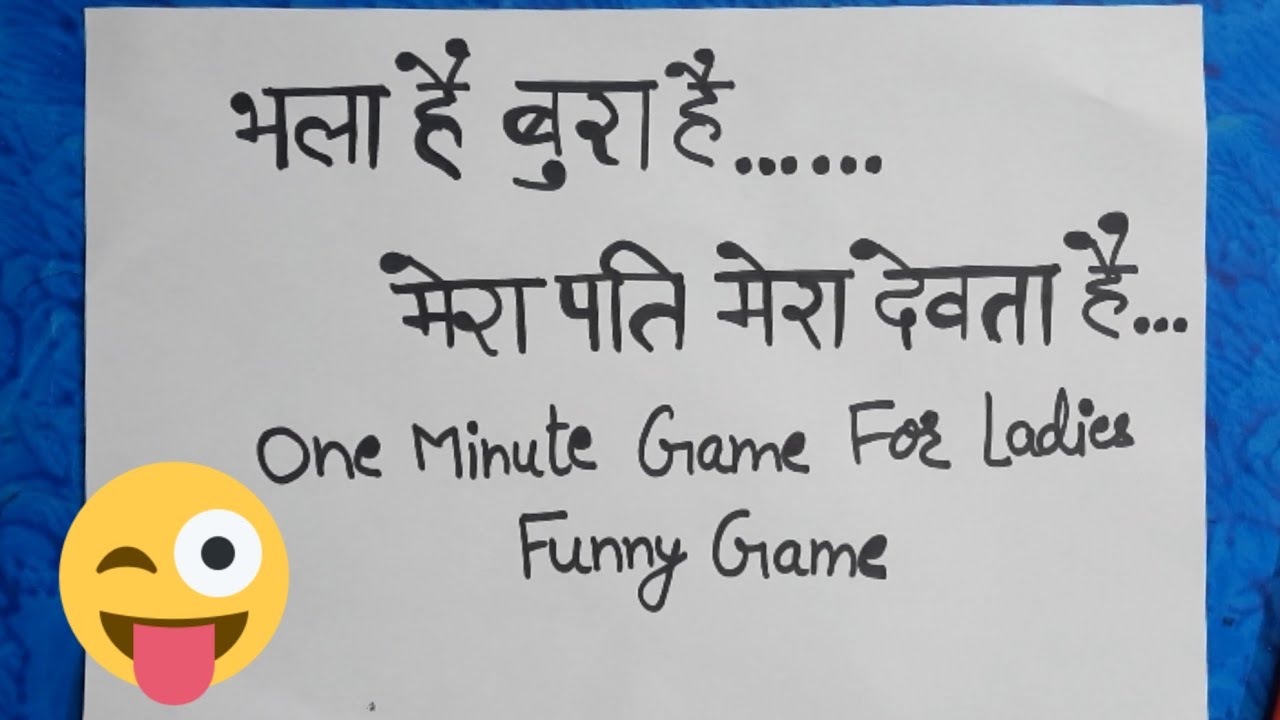 भला है बुरा है......
मेरा पति मेरा देवता है...
One Minute Game For Ladies
Funny Game